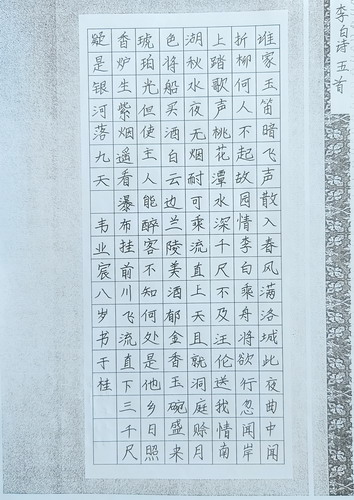 李白诗五首
谁家玉笛暗飞声散入春风满洛城此夜曲中闻
折柳何人不起故园情李白乘舟将欲行忽闻岸
上踏歌声桃花潭水深千尺不及汪伦送我情南
湖秋水夜无烟耐可乘流直上天且就洞庭赊月
色将船买酒白云边兰陵美酒郁金香玉碗盛来
琥珀光但使主人能醉客不知何处是他乡日照
香炉生紫烟遥看瀑布挂前川飞流直下三千尺
疑是银河落九天 韦业宸八岁书于桂